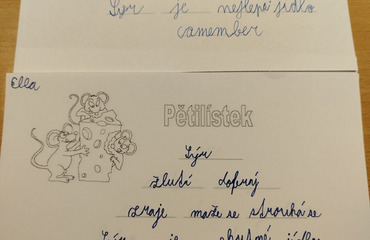 Sýr je nejlepší jídlo
camember
Ella
Pětilístek
Sýr
žlutí dobrný
zraje maže se strouhá se
Sýr je chutné jídlo